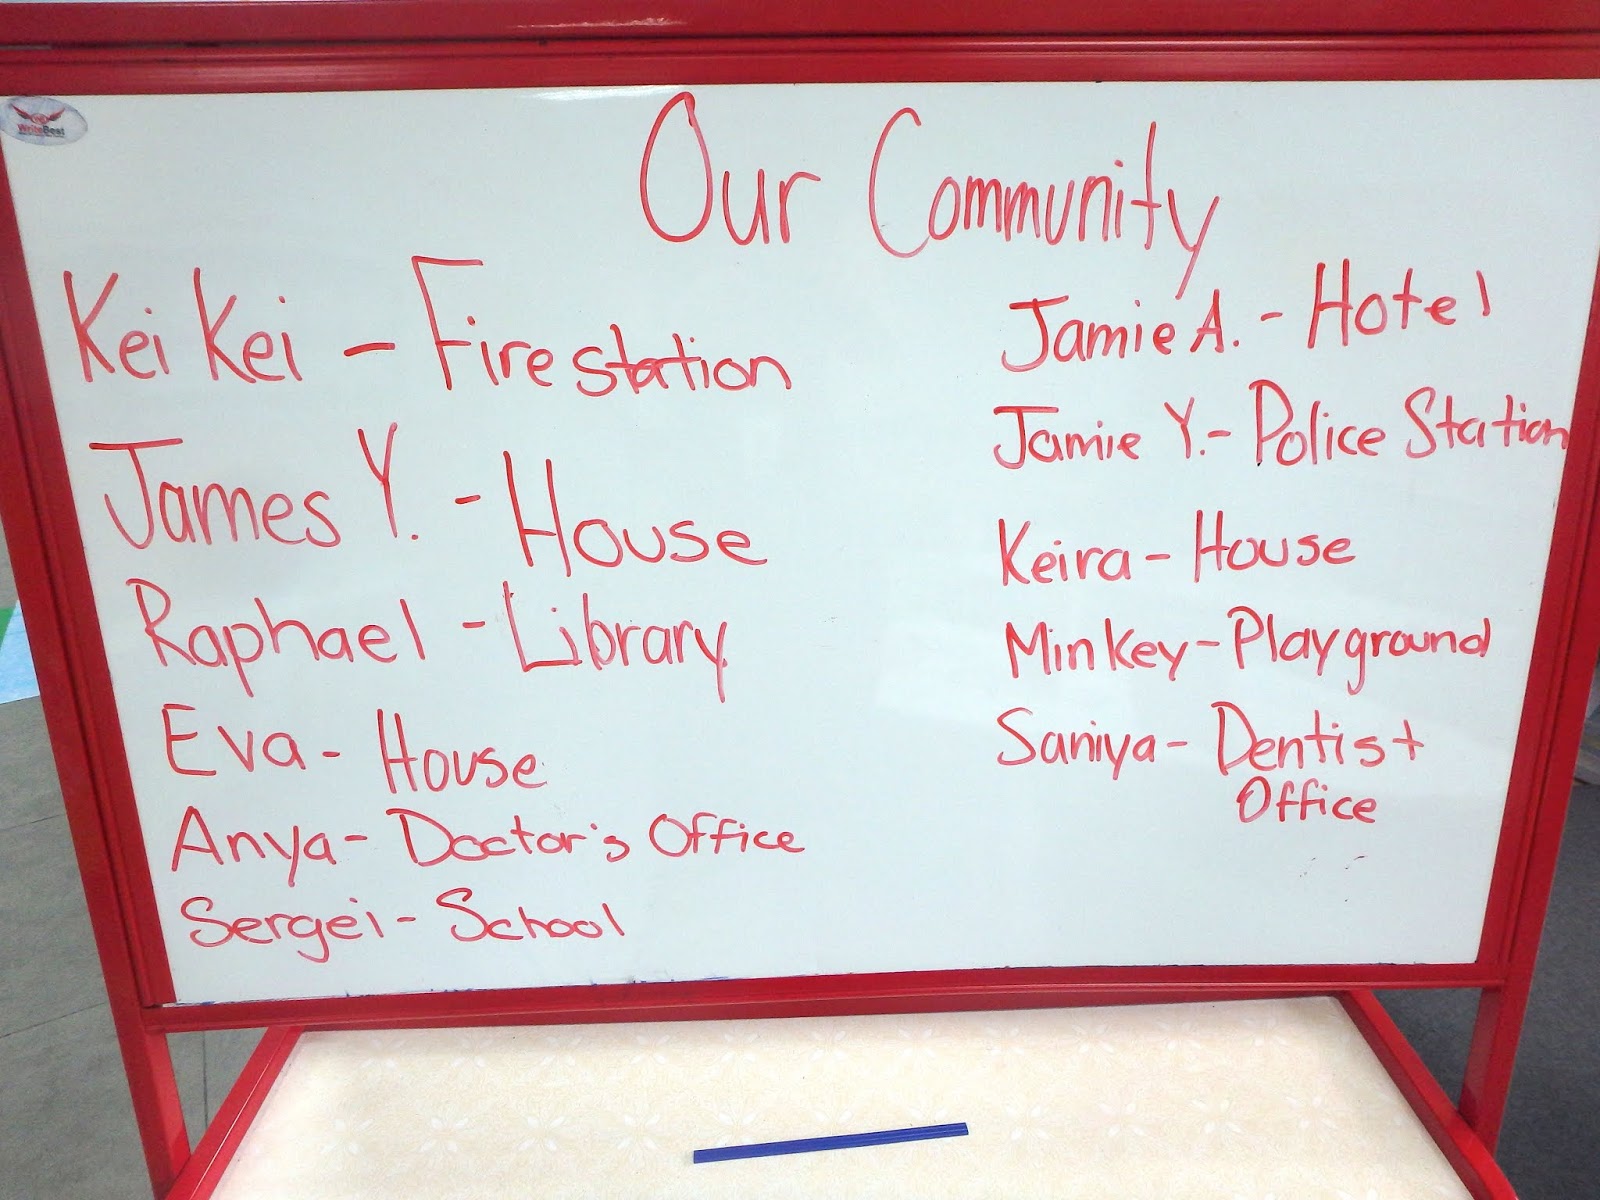 WriteBest
Our Community
Kei Kei - Fire station
James Y. - House
Raphael - Library
Eva - House
Anya - Doctor's Office
Sergei - School
Jamie A. - Hotel
Jamie Y. - Police Station
Keira - House
Minkey - Playground
Saniya - Dentist
Office